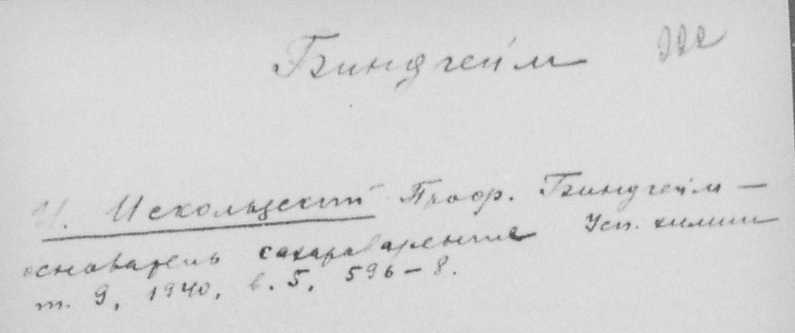 Биндгейм
И. Искольдский Проф. Биндгейм —
основатель сахароварения Усп. химии
т. 9, 1940, в. 5, 596–8.